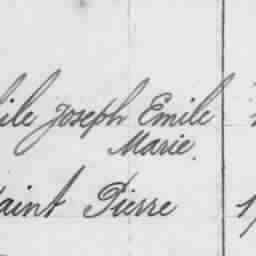 Joseph Emile
Marie.
Saint Pierre